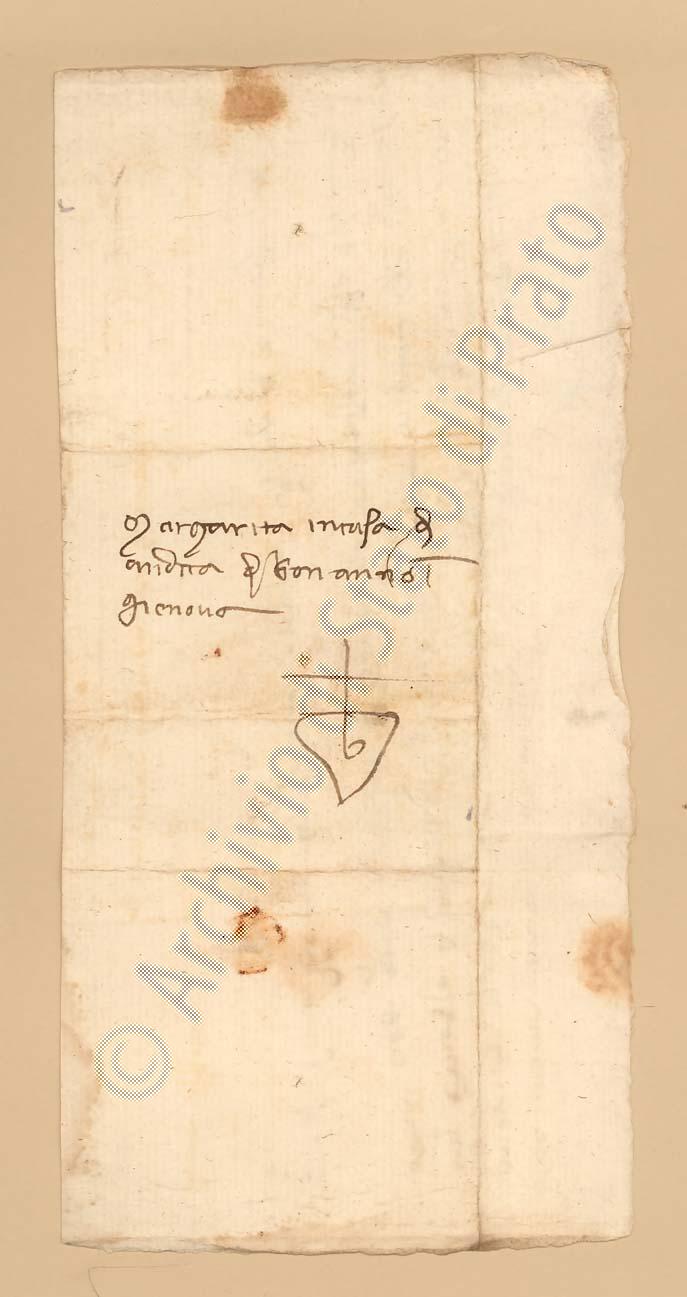 Margarita in casa d
andrea d Bonanno i
Gienova
© Archivio di Stato di Prato